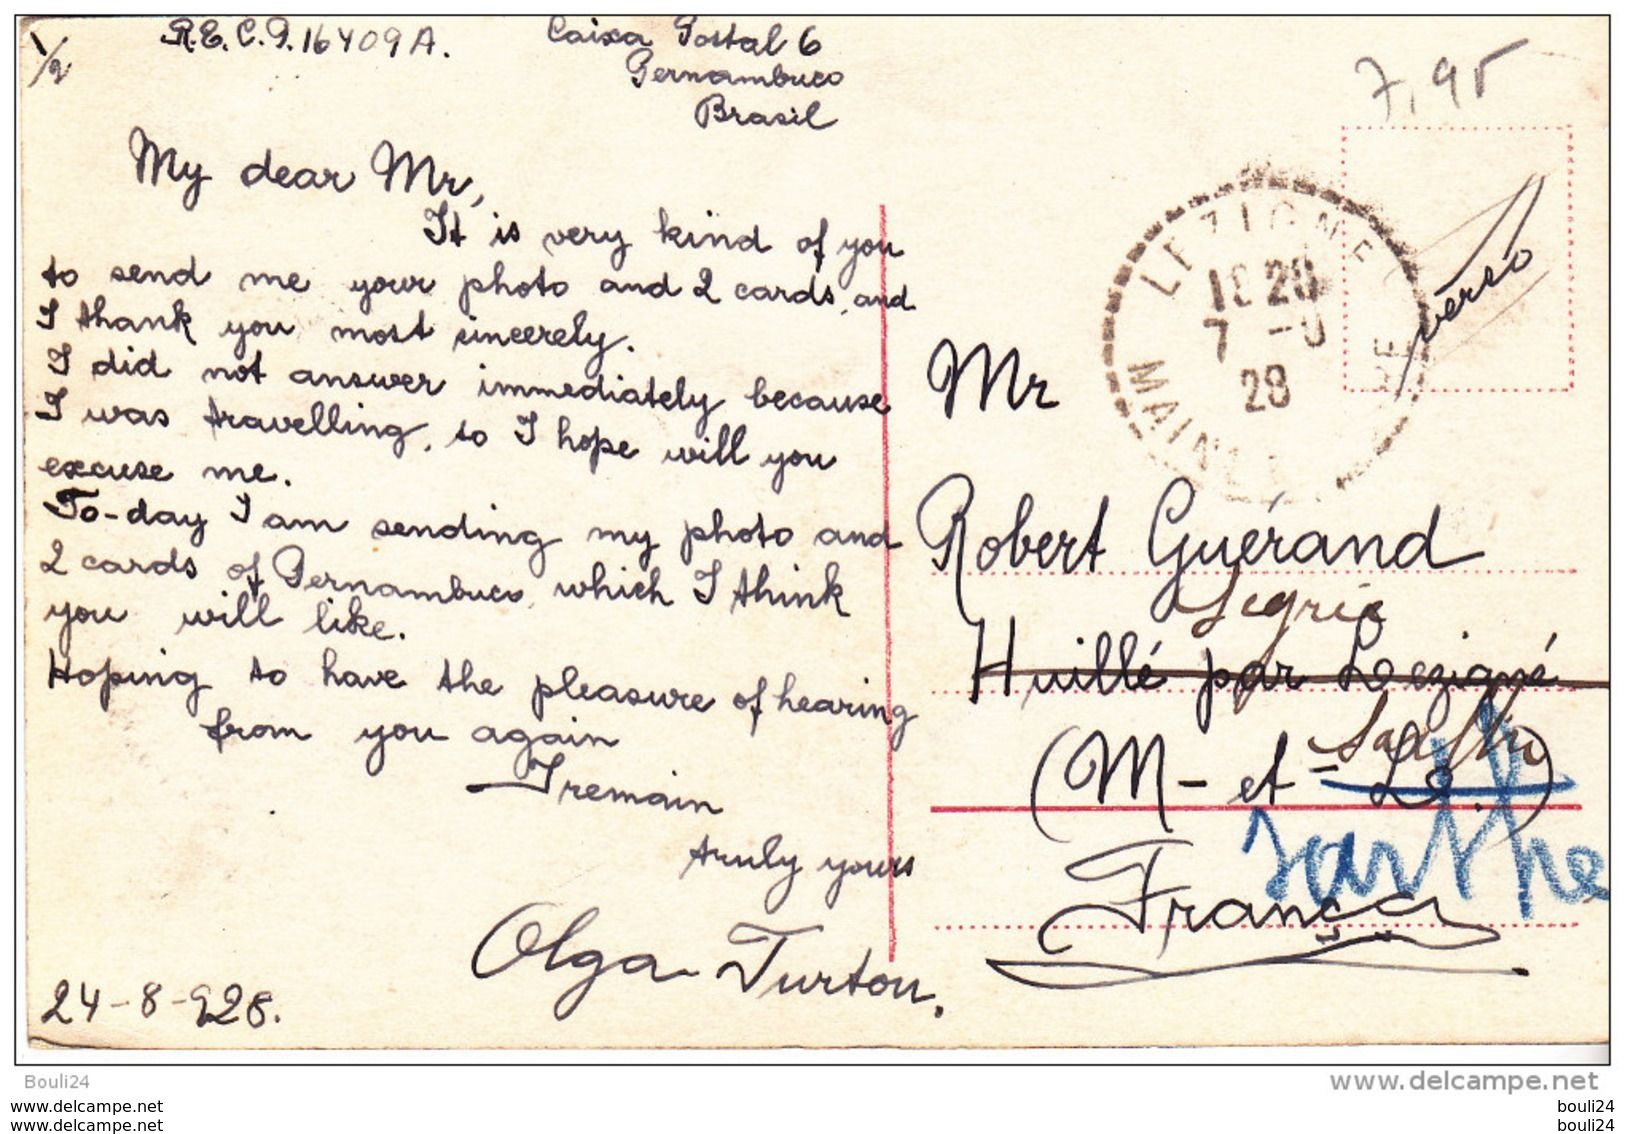 1/2
R.E.C.P. 16409A.
Caixa Postal 6
Pernambuco
Brasil
My dear Mr,
It is very kind of you
to send me your photo and 2 cards, and
I thank you most sincerely.
I did not answer immediately because
I was travelling, so I hope will you
excuse me.
To-day I am sending my photo and
2 cards of Pernambuco, which I think
you will like.
Hoping to have the pleasure of hearing
from you again
I remain
truly yours
Olga Turton.
24-8-928.
7,95
verso
LEZIGNE
20
7
28
MAINE
Mr
Robert Guérand
Huillé par Lezigné
(M-et-L.)
sarthe
França
Bouli24
www.delcampe.net
www.delcampe.com
bouli24
www.delcampe.com
bouli24